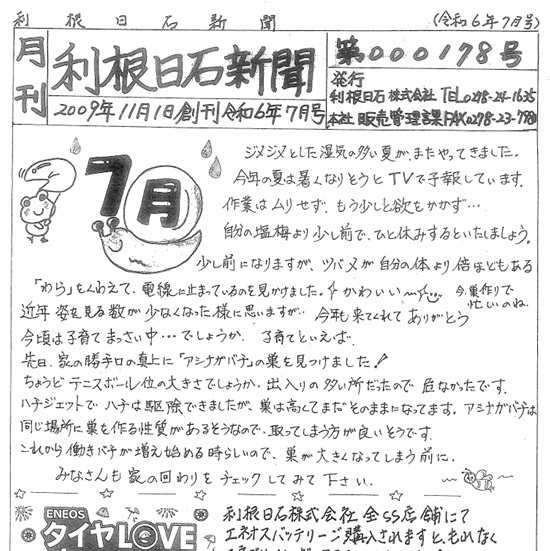 利根日石新聞
(令和6年7月号)
月刊
利根日石新聞
2009年11月1日創刊 令和6年7月号
第000178号
発行
利根日石株式会社 TEL0278-24-1635
本社 販売管理課 FAX0278-23-7580
7月
ジメジメとした湿気の多い夏が、またやってきました。
今年の夏は暑くなりそうとTVで予報しています。
作業はムリせず、もう少しと欲をかかず…
自分の塩梅より少し前で、ひと休みするといたしましょう。
少し前になりますが、ツバメが自分の体より倍ほどもある
「わら」をくわえて、電線に止まっているのを見かけました。かわいい〜 今、巣作りで忙しいのね。
近年姿を見る数が少なくなった様に思いますが、今年も来てくれてありがとう
今頃は子育てまっさい中…でしょうか。子育てといえば、
先日、家の勝手口の真上に「アシナガバチ」の巣を見つけました!
ちょうどテニスボール位の大きさでしょうか、出入りの多い所だったので危なかったです。
ハチジェットでハチは駆除できましたが、巣は高くてまだそのままになってます。アシナガバチは
同じ場所に巣を作る性質があるそうなので、取ってしまう方が良いそうです。
これから働きバチが増え始める時らしいので、巣が大きくなってしまう前に、
みなさんも家の回わりをチェックしてみて下さい。
ENEOS
タイヤLOVE
利根日石株式会社全SS店舗にて
エネオスバッテリーご購入されますと、もれなく